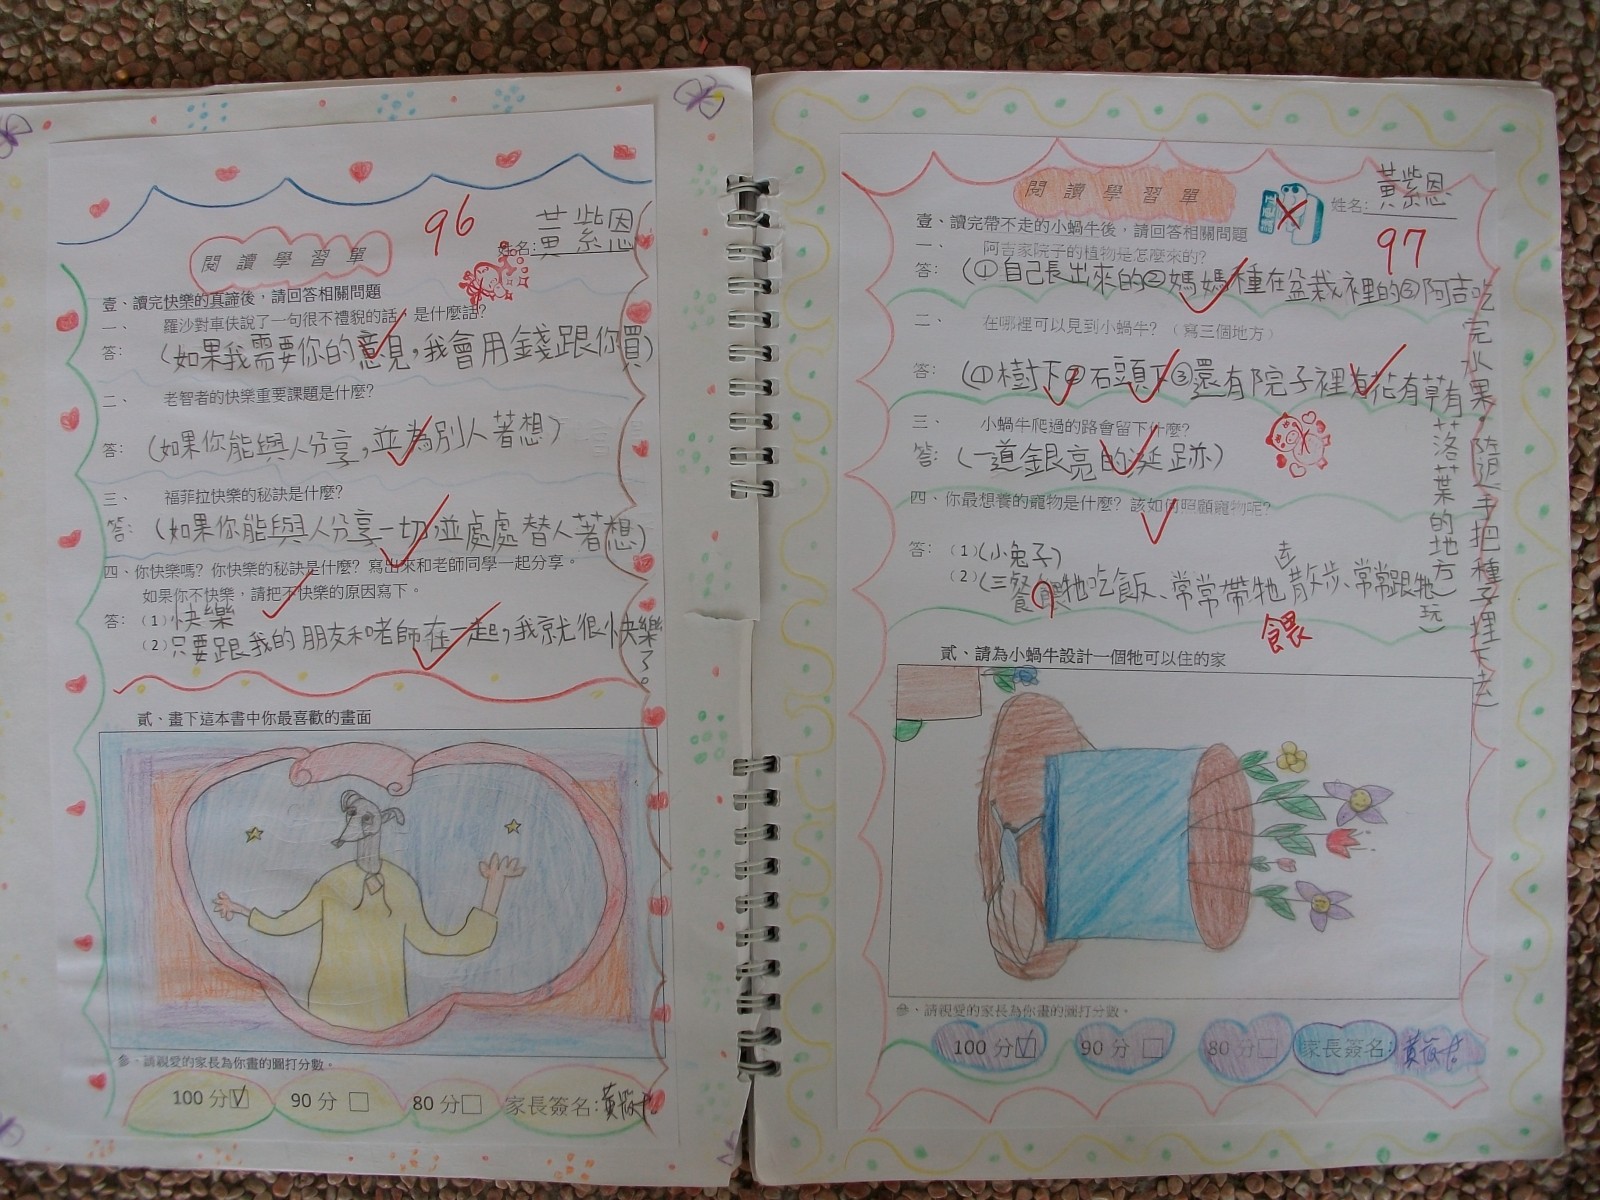 96
姓名:黃紫恩
閱讀學習單
壹、讀完快樂的真諦後,請回答相關問題
一、 羅沙對車伕說了一句很不禮貌的話,是什麼話?
答: (如果我需要你的意見,我會用錢跟你買)
二、 老智者的快樂重要課題是什麼?
答: (如果你能與人分享,並為別人著想)
三、 福菲拉快樂的秘訣是什麼?
答: (如果你能與人分享一切,並處處替人著想)
四、你快樂嗎?你快樂的秘訣是什麼?寫出來和老師同學一起分享。
如果你不快樂,請把不快樂的原因寫下。
答: (1)快樂
(2)只要跟我的朋友和老師在一起,我就很快樂了。
貳、畫下這本書中你最喜歡的畫面
參、請親愛的家長為你畫的圖打分數。
100 分 90 分 80 分 家長簽名:
閱讀學習單
姓名:黃紫恩
97
壹、讀完帶不走的小蝸牛後,請回答相關問題
一、 阿吉家院子的植物是怎麼來的?
答: (①自己長出來的②媽媽種在盆栽裡的③阿吉吃完水果,隨手把種子埋下去)
二、 在哪裡可以見到小蝸牛?(寫三個地方)
答: (①樹下②石頭下③還有院子裡有花有草有落葉的地方)
三、 小蝸牛爬過的路會留下什麼?
答: (一道銀亮的涎跡)
四、你最想養的寵物是什麼?該如何照顧寵物呢?
答: (1)(小兔子)
(2)(三餐 牠吃飯、常常帶牠去散步、常常跟牠玩)
餵
貳、請為小蝸牛設計一個牠可以住的家
參、請親愛的家長為你畫的圖打分數。
100 分 90 分 80 分 家長簽名: